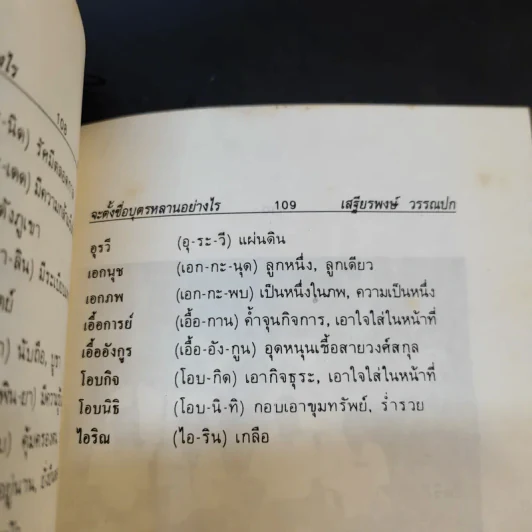 งไร
108
-นิด) รัศมี
ดังภูเขา
า-สิน) มีระเบียบ
) นับถือ, บูชา
อยู่นาน, ยั่งยืน
จะตั้งชื่อบุตรหลานอย่างไร 109 เสฐียรพงษ์ วรรณปก
อุรวี (อุ-ระ-วี) แผ่นดิน
เอกนุช (เอก-กะ-นุด) ลูกหนึ่ง, ลูกเดียว
เอกภพ (เอก-กะ-พบ) เป็นหนึ่งในภพ, ความเป็นหนึ่ง
เอื้อการย์ (เอื้อ-กาน) ค้ำจุนกิจการ, เอาใจใส่ในหน้าที่
เอื้ออังกูร (เอื้อ-อัง-กูน) อุดหนุนเชื้อสายวงศ์สกุล
โอบกิจ (โอบ-กิด) เอากิจธุระ, เอาใจใส่ในหน้าที่
โอบนิธิ (โอบ-นิ-ทิ) กอบเอาขุมทรัพย์, ร่ำรวย
ไอริณ (ไอ-ริน) เกลือ